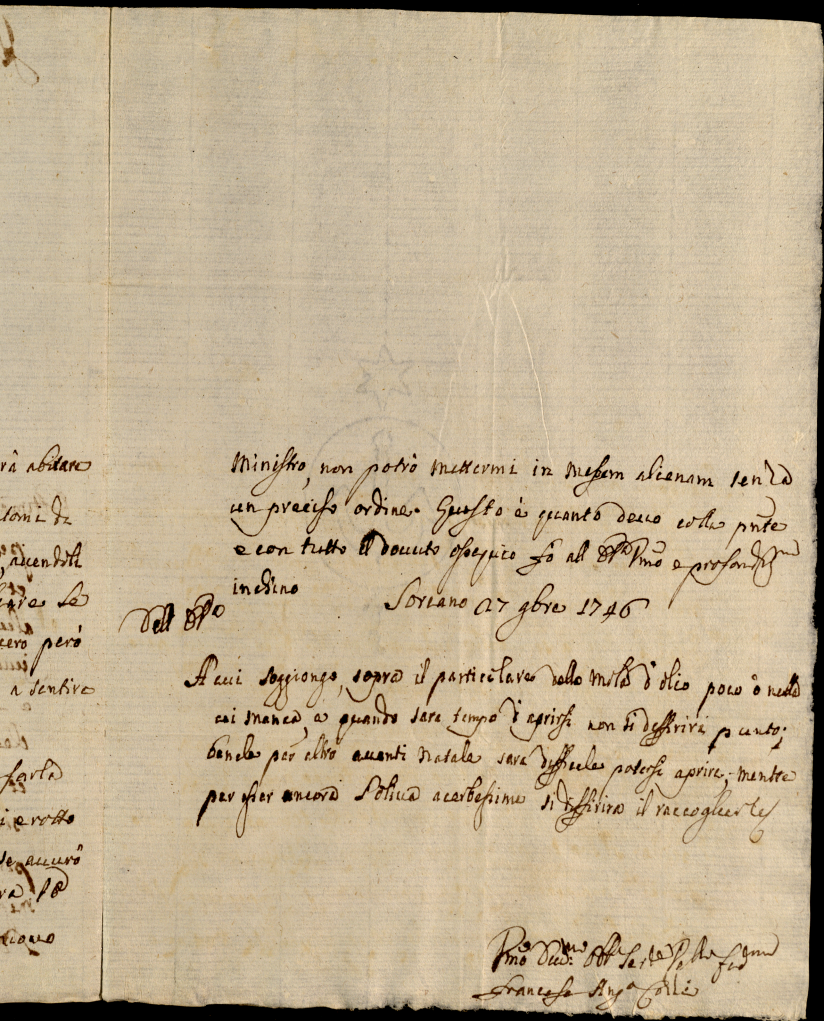 rà abitare
tomi di
, avendoli
care se
cero però
a sentire
farla
i rotto
se accurò
ra
Ministro, non potrò mettermi in messem alienam senza
un preciso ordine. Questo è quanto devo colla pñte
e con tutto il dovuto ossequio fò all' Pmo e profondissmo
inchino
Soriano 27 9bre 1746
Dell'
A cui soggiongo, sopra il particolare della mola d'olio poco ò nulla
ci manca, e quando sara tempo d'aprirsi non si differirà punto;
benche per altro avanti Natale sarà difficile potersi aprire, mentre
per esser ancora l'oliva acerbissime si differirà il raccoglierle
Francesco Ang.o